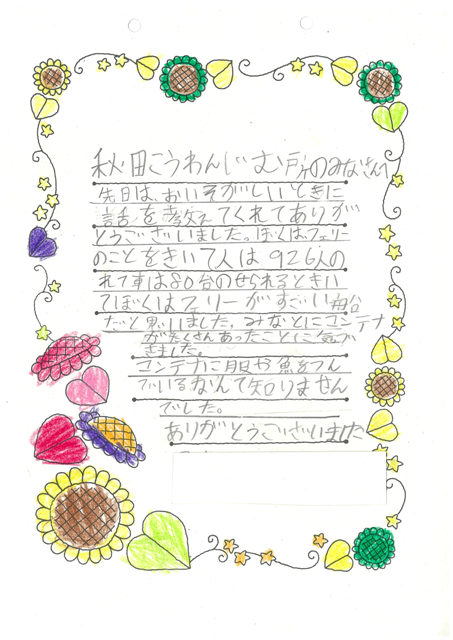 秋田こうわんじむ所のみなさんへ
先日は、おいそがしいときに
話を教えてくれてありが
とうございました。ぼくは、フェリー
のことをきいて人は926人の
れて車は80台のせられるときい
てぼくはフェリーがすごい船
だと思いました。みなとにコンテナ
がたくさんあったことに気づ
きました。
コンテナに服や魚をつん
でいるなんて知りません
でした。
ありがとうございました